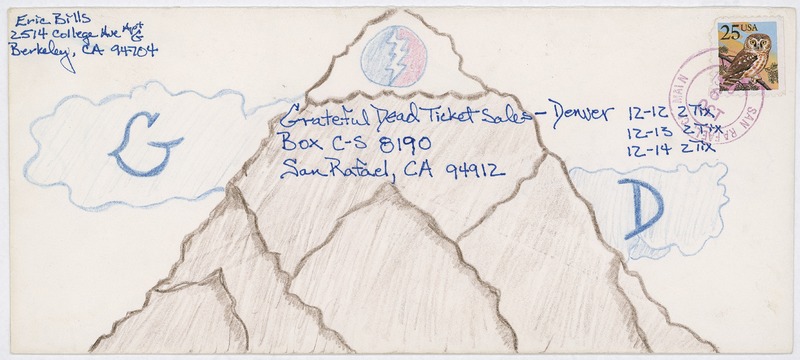 Eric Bills
2514 College Ave Apt G
Berkeley, CA 94704
25 USA
G
Grateful Dead Ticket Sales - Denver
Box C-S 8190
San Rafael, CA 94912
12-12 2 Tix
12-13 2 Tix
12-14 2 Tix
D
SAN RAFAEL MAIN
OCT